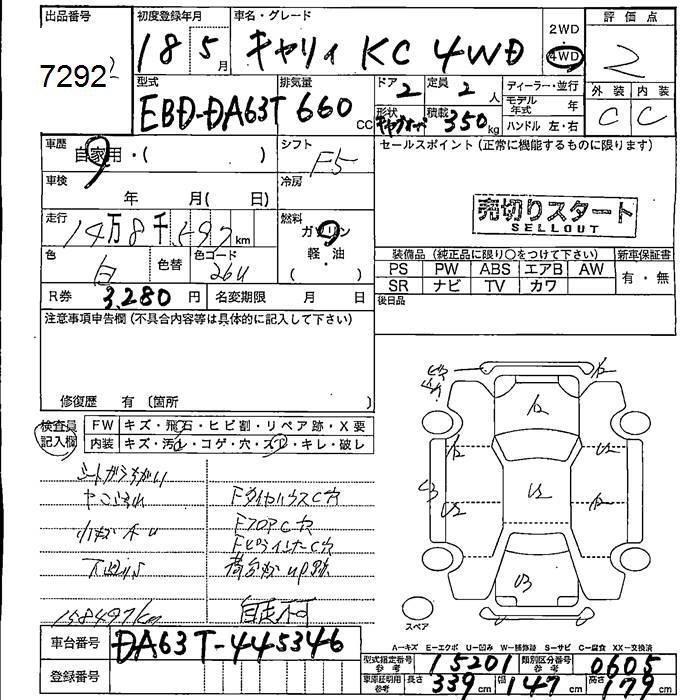 出品番号
7292
初度登録年月
18 5月
車名・グレード
キャリイ KC 4WD
2WD
・
4WD
評価点
2
型式
EBD-DA63T
排気量
660 CC
ドア 2
定員 2人
形状
積載 350kg
ディーラー・並行
モデル年式 年
ハンドル 左・右
外装 内装
C C
車歴
自家用・( )
シフト
F5
車検
年 月( 日)
冷房
走行
km
燃料
ガソリン
・
軽・油
( )
色
白
色替
色コード
26U
R券 3,280 円
名変期限 月 日
セールスポイント (正常に機能するものに限ります)
売切りスタート
SELLOUT
装備品 (純正品に限り○をつけて下さい)
新車保証書
PS PW ABS エアB AW
有・無
SR ナビ TV カワ
後日品
注意事項申告欄 (不具合内容等は具体的に記入して下さい)
修復歴 有 〔箇所 〕
検査員
記入欄
FW キズ・飛石・ヒビ割・リペア跡・X要
内装 キズ・汚し・コゲ・穴・スレ・キレ・破レ
FタイヤハウスC穴
FフロアC穴
FピラーインナーC穴
自走不可
158497km
U3
U2
U2
U2
U3
スペア
A-キズ E-エクボ U-凹み W-補修跡 S-サビ C-腐食 XX-交換済
車台番号 DA63T-445346
登録番号
型式指定番号 参考 15201
類別区分番号 参考 0605
車庫証明用 参考
長さ 339cm
幅 147cm
高さ 179cm